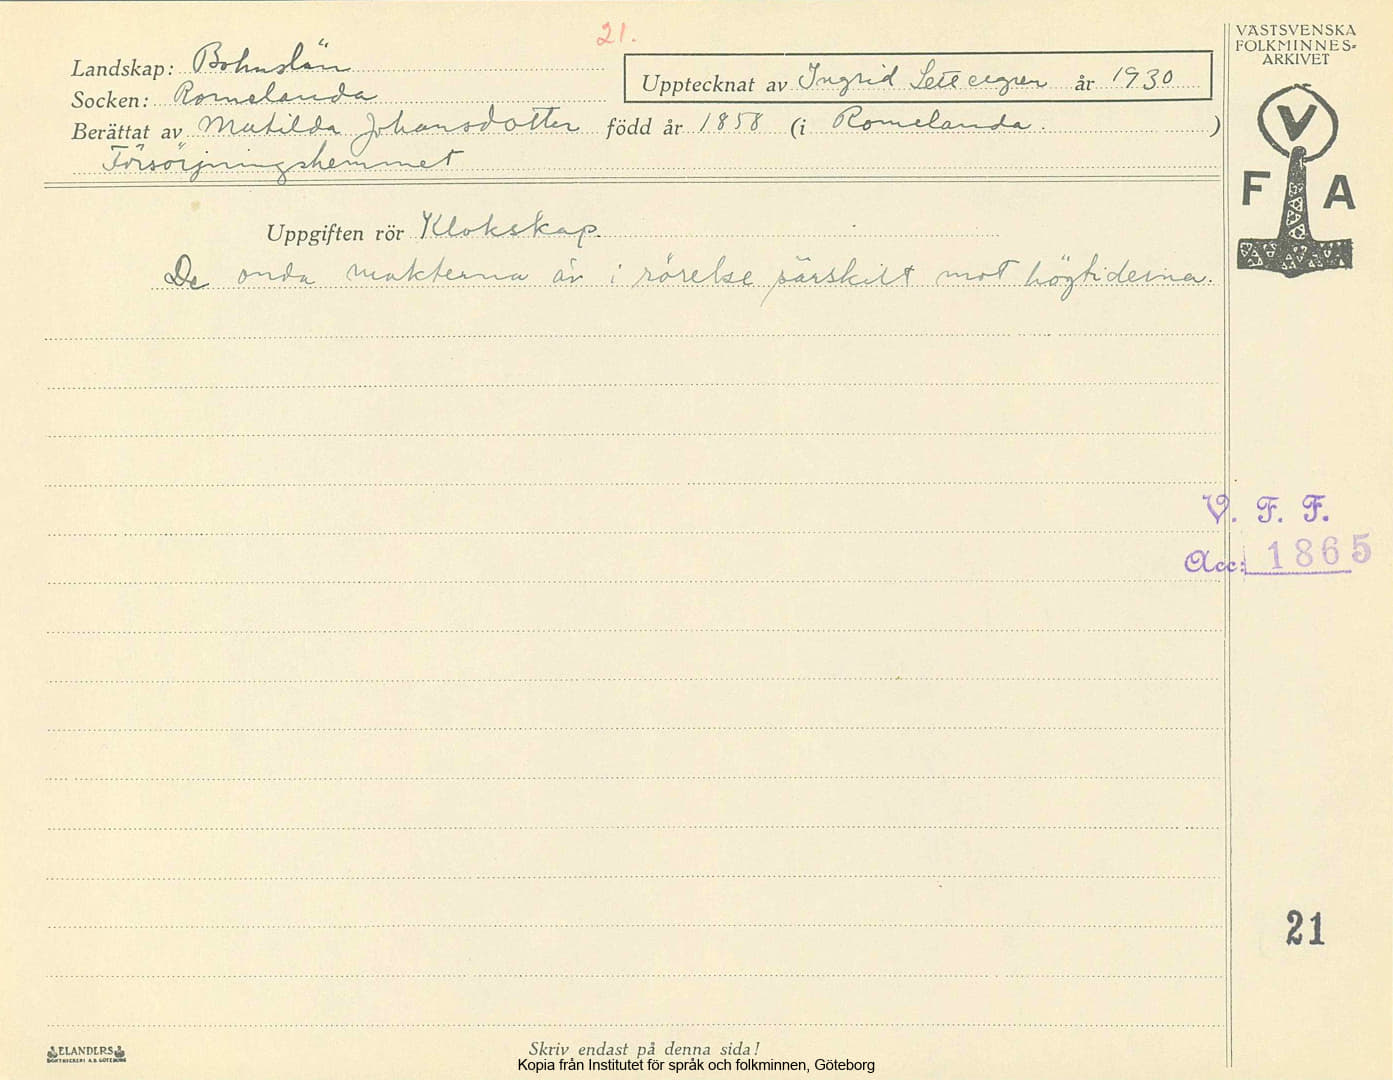 21.
VÄSTSVENSKA
FOLKMINNES-
ARKIVET
Landskap: Bohuslän
Upptecknat av Ingrid år 1930
Socken: Romelanda
Berättat av Matilda Johansdotter född år 1858 (i Romelanda.)
Försörjningshemmet
V
F A
Uppgiften rör Klokskap.
De onda makterna är i rörelse särskilt mot högtiderna.
V. F. F.
Acc: 1865
21
ELANDERS
BOKTRYCKERI A.B. GÖTEBORG
Skriv endast på denna sida!
Kopia från Institutet för språk och folkminnen, Göteborg